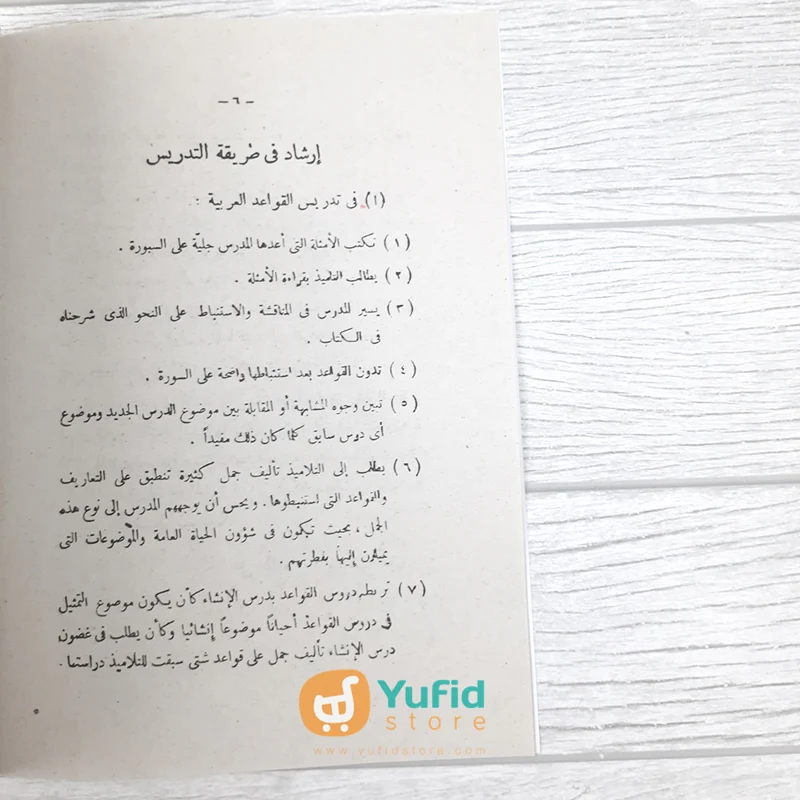 - ٦ -
إرشاد فى طريقة التدريس
(ا) فى تدريس القواعد العربية :
(١) تكتب الأمثلة التى أعدها المدرس جليّة على السبورة .
(٢) يطالب التلاميذ بقراءة الأمثلة .
(٣) يسير المدرس فى المناقشة والاستنباط على النحو الذى شرحناه
فى الكتاب .
(٤) تدون القواعد بعد استنباطها واضحة على السبورة .
(٥) تبين وجوه المشابهة أو المقابلة بين موضوع الدرس الجديد وموضوع
أى درس سابق كلما كان ذلك مفيداً .
(٦) يطلب إلى التلاميذ تأليف جمل كثيرة تنطبق على التعاريف
والقواعد التى استنبطوها . ويحسن أن يوجههم المدرس إلى نوع هذه
الجمل ، بحيث تكون فى شؤون الحياة العامة والموضوعات التى
يميلون إليها بفطرتهم .
(٧) تربط دروس القواعد بدرس الإنشاء كأن يكون موضوع التمثيل
فى دروس القواعد أحياناً موضوعاً إنشائيا وكأن يطلب فى غضون
درس الإنشاء تأليف جمل على قواعد شتى سبقت للتلاميذ دراستها .
Yufid
store
www.yufidstore.com